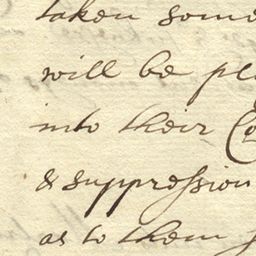 taken some
will be pl
into their Co
& suppression
as to them